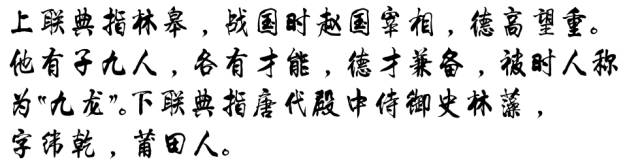 上联典指林皋，战国时赵国宰相，德高望重。
他有子九人，各有才能，德才兼备，被时人称
为“九龙”。下联典指唐代殿中侍御史林藻，
字纬乾，莆田人。